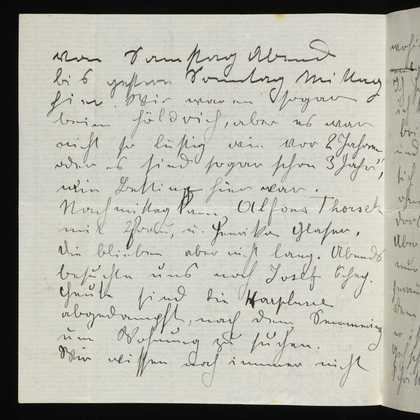 von Samstag Abend
bis gestern Sonntag Mittag
hier. Wir waren sogar
beim Höldrich, aber es war
nicht so lustig wie vor 2 Jahren
oder es sind sogar schon 3 Jahr',
wie Bettina hier war.
Nachmittag kam Alfons Thorsch
mit Frau, u. Henrika Glaser,
die blieben aber nicht lang. Abends
besuchte uns noch Josef
Heute sind die
abgedampft, nach dem Semmering
um Wohnung zu suchen.
Wir wissen noch immer nicht